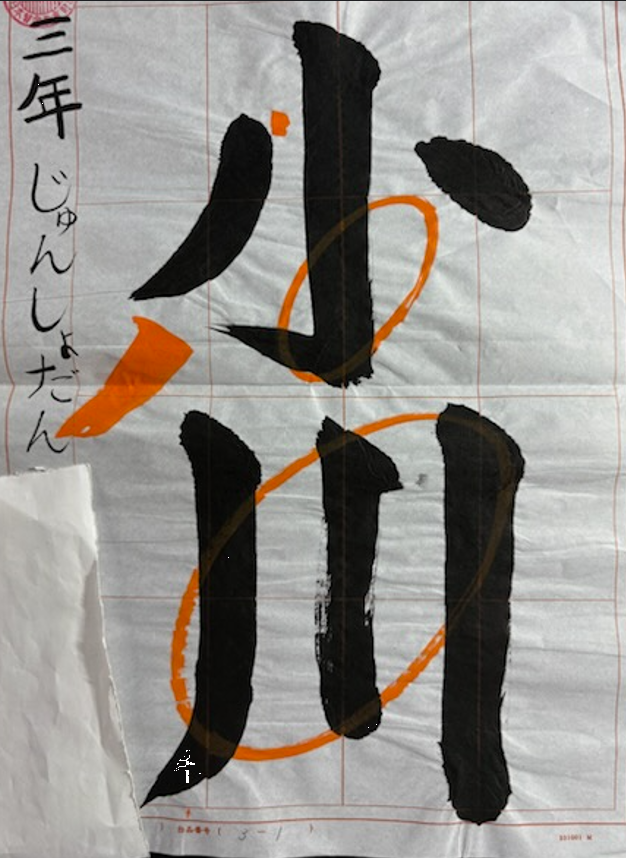 小川
三年 じゅんしょだん
出品番号 ( 3-1 )